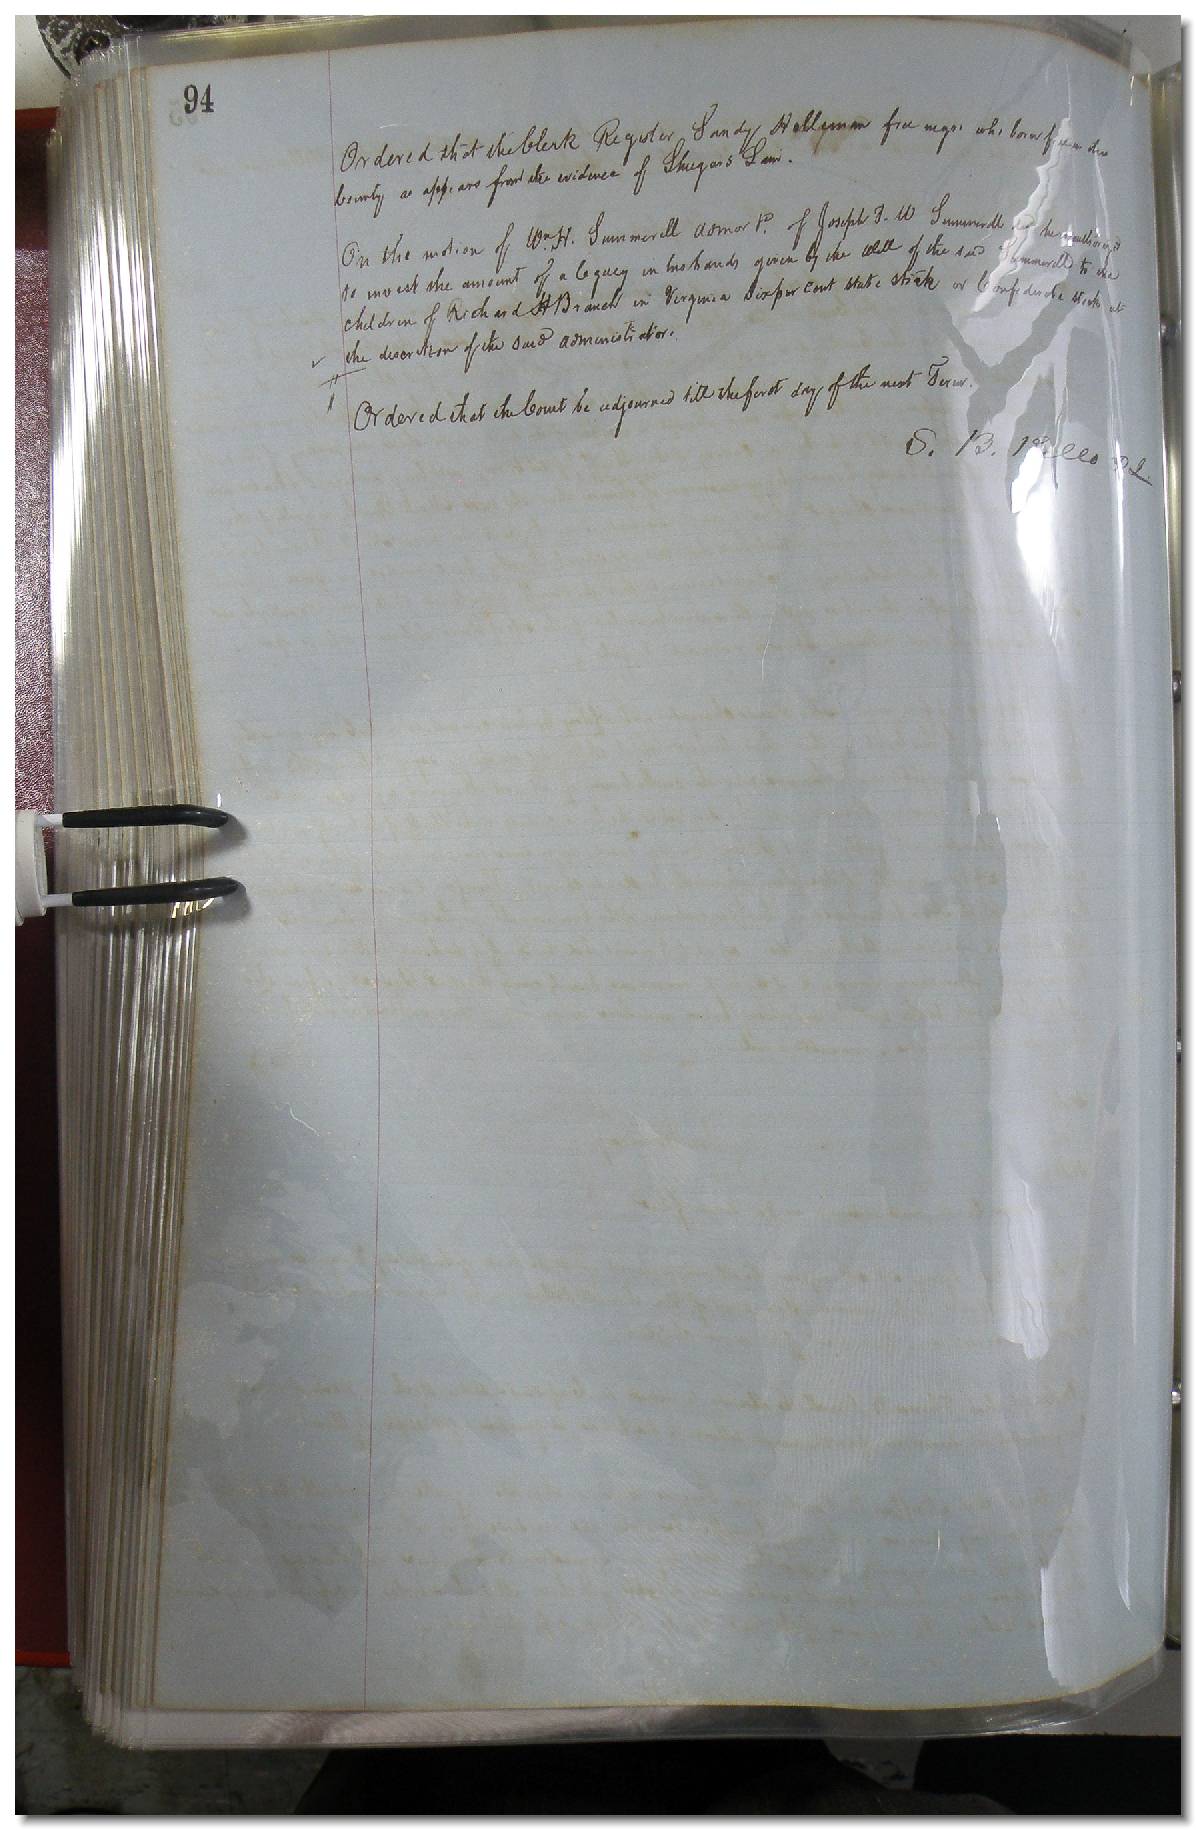 94
Ordered that the Clerk Register Sandy Holleman free negro who born free in this
County as appears from the evidence of Shugars Lain.
On the motion of Wm. H. Summerell Admor &c. of Joseph T. W Summerell is he authorized
to invest the amount of a legacy in his hands given by the Will of the said Summerell to the
children of Richard H Branch in Virginia Six per cent state stock or Confederate stock at
the discretion of the said administrator.
Ordered that the Court be adjourned till the first day of the next Term.
S. B.